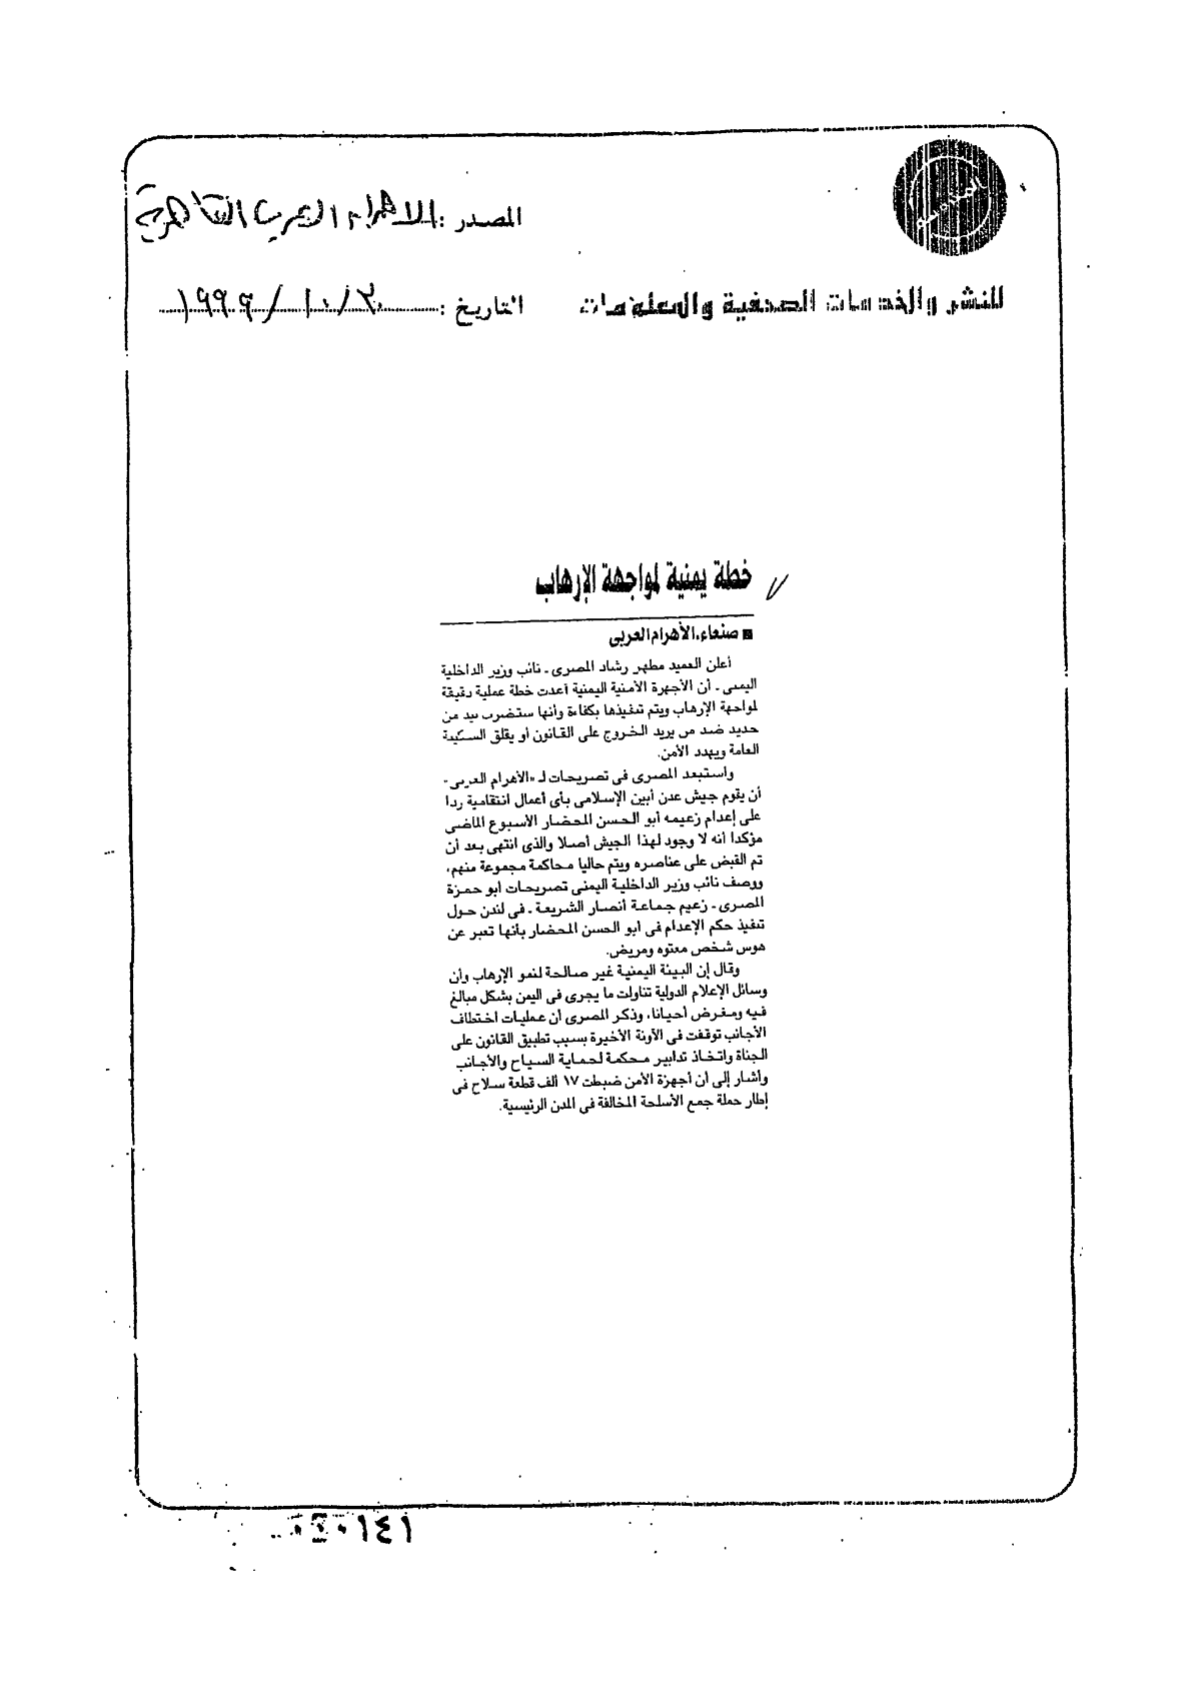 المصدر : الاهرام العربي القاهرية
للنشر والخدمات الصحفية والمعلومات
التاريخ : ٣٠/١٠/١٩٩٩
خطة يمنية لمواجهة الإرهاب
■ صنعاء.الأهرام العربى
أعلن العميد مطهر رشاد المصرى ـ نائب وزير الداخلية
اليمنى ـ أن الأجهزة الأمنية اليمنية أعدت خطة عملية دقيقة
لمواجهة الإرهاب ويتم تنفيذها بكفاءة وأنها ستضرب بيد من
حديد ضد من يريد الخروج على القانون أو يقلق السكينة
العامة ويهدد الأمن.
واستبعد المصرى فى تصريحات لـ «الأهرام العربى»
أن يقوم جيش عدن أبين الإسلامى بأى أعمال انتقامية ردا
على إعدام زعيمه أبو الحسن المحضار الأسبوع الماضى
مؤكدا أنه لا وجود لهذا الجيش أصلا والذى انتهى بعد أن
تم القبض على عناصره ويتم حاليا محاكمة مجموعة منهم،
ووصف نائب وزير الداخلية اليمنى تصريحات ابو حمزة
المصرى ـ زعيم جماعة أنصار الشريعة ـ فى لندن حول
تنفيذ حكم الإعدام فى ابو الحسن المحضار بأنها تعبر عن
هوس شخص معتوه ومريض.
وقال إن البيئة اليمنية غير صالحة لنمو الإرهاب وأن
وسائل الإعلام الدولية تناولت ما يجرى فى اليمن بشكل مبالغ
فيه ومغرض أحيانا، وذكر المصرى أن عمليات اختطاف
الأجانب توقفت فى الآونة الأخيرة بسبب تطبيق القانون على
الجناة واتخاذ تدابير محكمة لحماية السياح والأجانب
وأشار إلى أن أجهزة الأمن ضبطت ١٧ ألف قطعة سلاح فى
إطار حملة جمع الأسلحة المخالفة فى المدن الرئيسية.